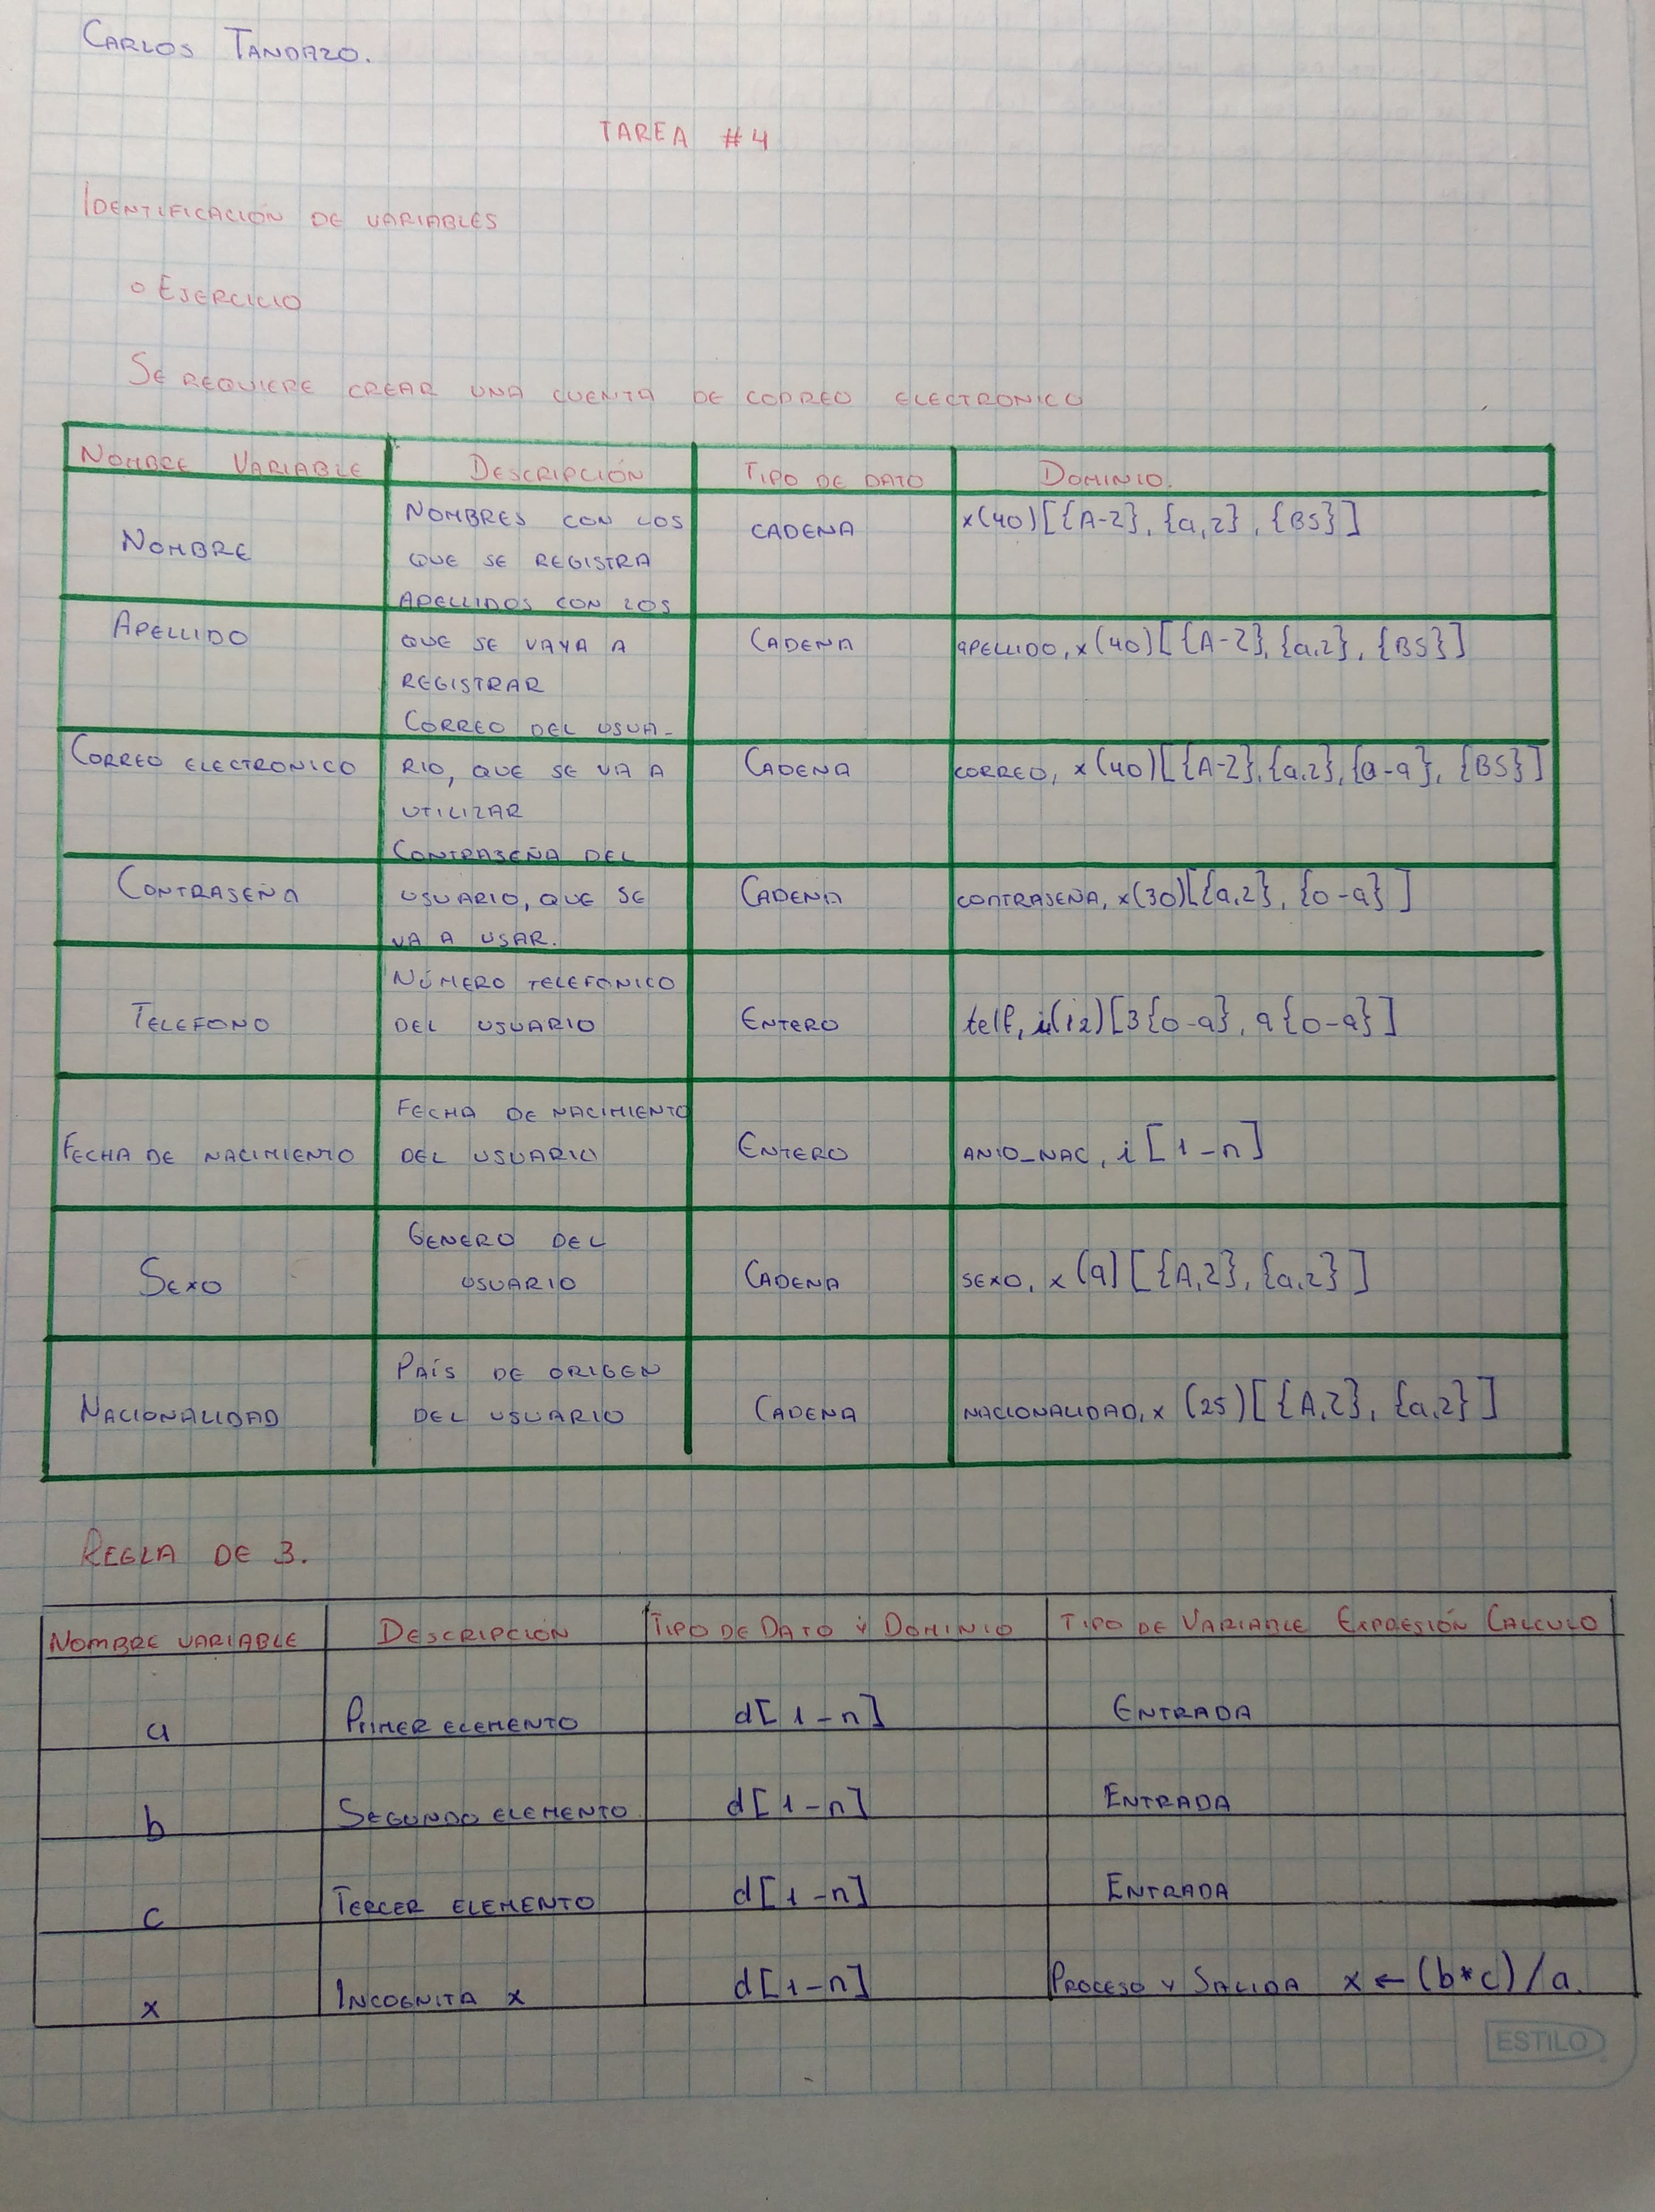 CARLOS TANDAZO.
TAREA #4
IDENTIFICACIÓN DE VARIABLES
o EJERCICIO
SE REQUIERE CREAR UNA CUENTA DE CORREO ELECTRONICO
NOMBRE VARIABLE DESCRIPCIÓN TIPO DE DATO DOMINIO.
NOMBRE
NOMBRES CON LOS
QUE SE REGISTRA
CADENA
x(40)[{A-Z}, {a,z}, {BS}]
APELLIDO
APELLIDOS CON LOS
QUE SE VAYA A
REGISTRAR
CADENA
APELLIDO, x(40)[{A-Z}, {a,z}, {BS}]
CORREO ELECTRONICO
CORREO DEL USUA-
RIO, QUE SE VA A
UTILIZAR
CADENA
CORREO, x(40)[{A-Z}, {a,z}, {0-9}, {BS}]
CONTRASEÑA
CONTRASEÑA DEL
USUARIO, QUE SE
VA A USAR.
CADENA
CONTRASEÑA, x(30)[{a,z}, {0-9}]
TELEFONO
NÚMERO TELEFONICO
DEL USUARIO
ENTERO
telf, i(12)[3{0-9}, 9{0-9}]
FECHA DE NACIMIENTO
FECHA DE NACIMIENTO
DEL USUARIO
ENTERO
ANIO_NAC, i[1-n]
SEXO
GENERO DEL
USUARIO
CADENA
SEXO, x(9)[{A,Z}, {a,z}]
NACIONALIDAD
PAÍS DE ORIGEN
DEL USUARIO
CADENA
NACIONALIDAD, x (25)[{A,Z}, {a,z}]
REGLA DE 3.
NOMBRE VARIABLE DESCRIPCIÓN TIPO DE DATO Y DOMINIO TIPO DE VARIABLE EXPRESIÓN CALCULO
a PRIMER ELEMENTO d[1-n] ENTRADA
b SEGUNDO ELEMENTO d[1-n] ENTRADA
c TERCER ELEMENTO d[1-n] ENTRADA
x INCOGNITA x d[1-n] PROCESO Y SALIDA x ← (b*c)/a.
ESTILO